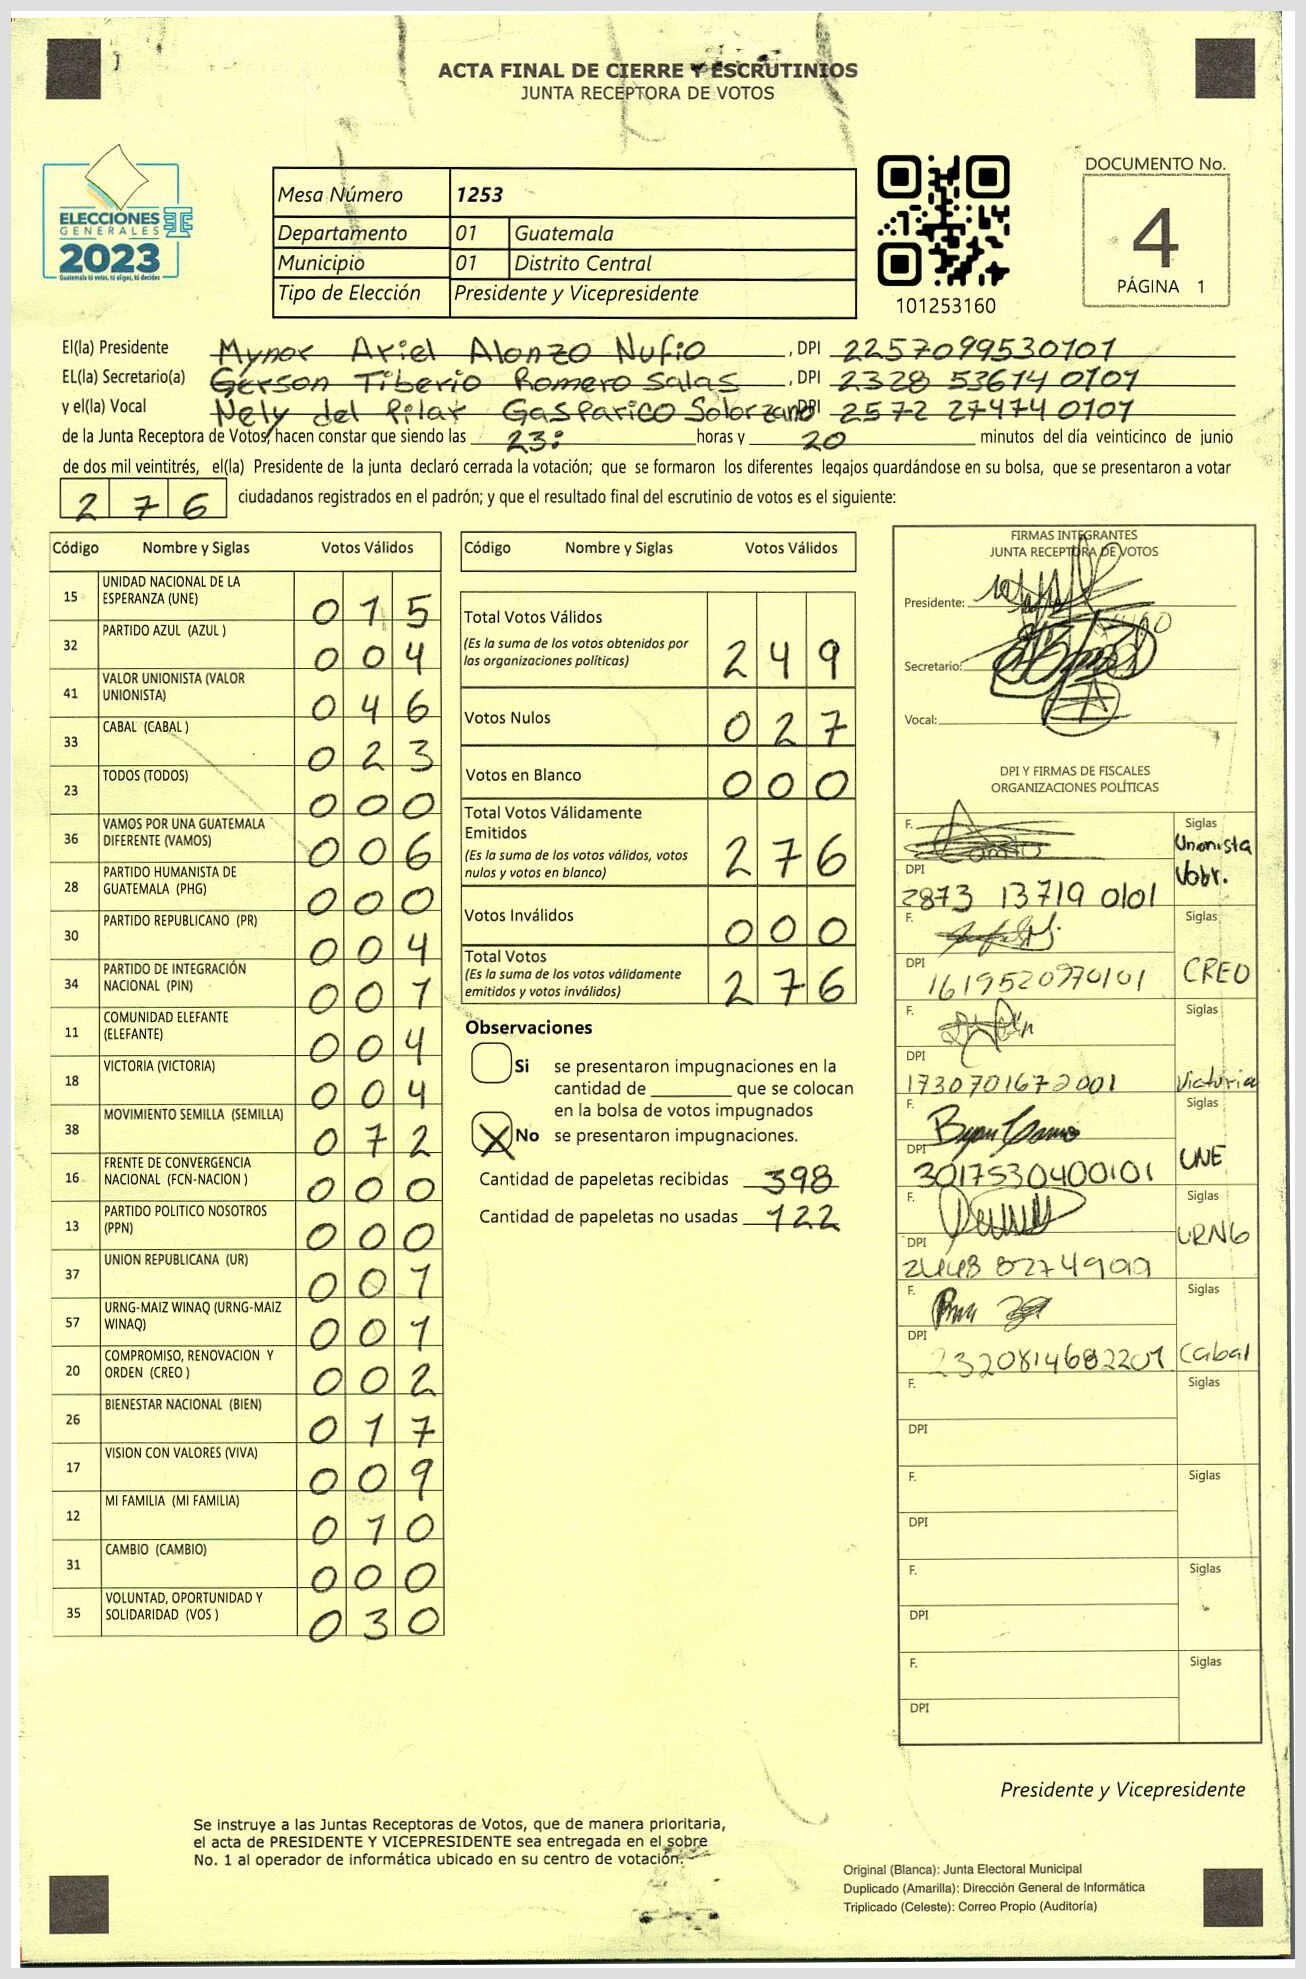 ACTA FINAL DE CIERRE Y ESCRUTINIOS
JUNTA RECEPTORA DE VOTOS
ELECCIONES
GENERALES
2023
Guatemala tú votas, tú eliges, tú decides
Mesa Número 1253
Departamento 01 Guatemala
Municipio 01 Distrito Central
Tipo de Elección Presidente y Vicepresidente
101253160
DOCUMENTO No.
4
PÁGINA 1
El(la) Presidente Mynor Ariel Alonzo Nufio , DPI 2257099530101
EL(la) Secretario(a) Gerson Tiberio Romero Salas , DPI 2328 53614 0101
y el(la) Vocal Nely del Pilar Gasparico Solorzano DPI 2572 27474 0101
de la Junta Receptora de Votos, hacen constar que siendo las 23: horas y 20 minutos del día veinticinco de junio
de dos mil veintitrés, el(la) Presidente de la junta declaró cerrada la votación; que se formaron los diferentes legajos guardándose en su bolsa, que se presentaron a votar
276 ciudadanos registrados en el padrón; y que el resultado final del escrutinio de votos es el siguiente:
Código Nombre y Siglas Votos Válidos
15 UNIDAD NACIONAL DE LA ESPERANZA (UNE) 015
32 PARTIDO AZUL (AZUL ) 004
41 VALOR UNIONISTA (VALOR UNIONISTA) 046
33 CABAL (CABAL ) 023
23 TODOS (TODOS) 000
36 VAMOS POR UNA GUATEMALA DIFERENTE (VAMOS) 006
28 PARTIDO HUMANISTA DE GUATEMALA (PHG) 000
30 PARTIDO REPUBLICANO (PR) 004
34 PARTIDO DE INTEGRACIÓN NACIONAL (PIN) 001
11 COMUNIDAD ELEFANTE (ELEFANTE) 004
18 VICTORIA (VICTORIA) 004
38 MOVIMIENTO SEMILLA (SEMILLA) 072
16 FRENTE DE CONVERGENCIA NACIONAL (FCN-NACION ) 000
13 PARTIDO POLITICO NOSOTROS (PPN) 000
37 UNION REPUBLICANA (UR) 001
57 URNG-MAIZ WINAQ (URNG-MAIZ WINAQ) 001
20 COMPROMISO, RENOVACION Y ORDEN (CREO ) 002
26 BIENESTAR NACIONAL (BIEN) 017
17 VISION CON VALORES (VIVA) 009
12 MI FAMILIA (MI FAMILIA) 010
31 CAMBIO (CAMBIO) 000
35 VOLUNTAD, OPORTUNIDAD Y SOLIDARIDAD (VOS ) 030
Código Nombre y Siglas Votos Válidos
Total Votos Válidos 249
(Es la suma de los votos obtenidos por las organizaciones políticas)
Votos Nulos 027
Votos en Blanco 000
Total Votos Válidamente Emitidos 276
(Es la suma de los votos válidos, votos nulos y votos en blanco)
Votos Inválidos 000
Total Votos 276
(Es la suma de los votos válidamente emitidos y votos inválidos)
Observaciones
Si se presentaron impugnaciones en la
cantidad de ________ que se colocan
en la bolsa de votos impugnados
X No se presentaron impugnaciones.
Cantidad de papeletas recibidas 398
Cantidad de papeletas no usadas 122
FIRMAS INTEGRANTES
JUNTA RECEPTORA DE VOTOS
Presidente:
Secretario:
Vocal:
DPI Y FIRMAS DE FISCALES
ORGANIZACIONES POLÍTICAS
F. Siglas Unionista
DPI 2873 13719 0101
F. Siglas CREO
DPI 1619520970101
F. Siglas Victoria
DPI 1730701672001
F. Siglas UNE
DPI 3017530400101
F. Siglas URNG
DPI
F. Siglas Cabal
DPI 2320814682201
F. Siglas
DPI
F. Siglas
DPI
F. Siglas
DPI
F. Siglas
DPI
Presidente y Vicepresidente
Se instruye a las Juntas Receptoras de Votos, que de manera prioritaria,
el acta de PRESIDENTE Y VICEPRESIDENTE sea entregada en el sobre
No. 1 al operador de informática ubicado en su centro de votación.
Original (Blanca): Junta Electoral Municipal
Duplicado (Amarilla): Dirección General de Informática
Triplicado (Celeste): Correo Propio (Auditoría)